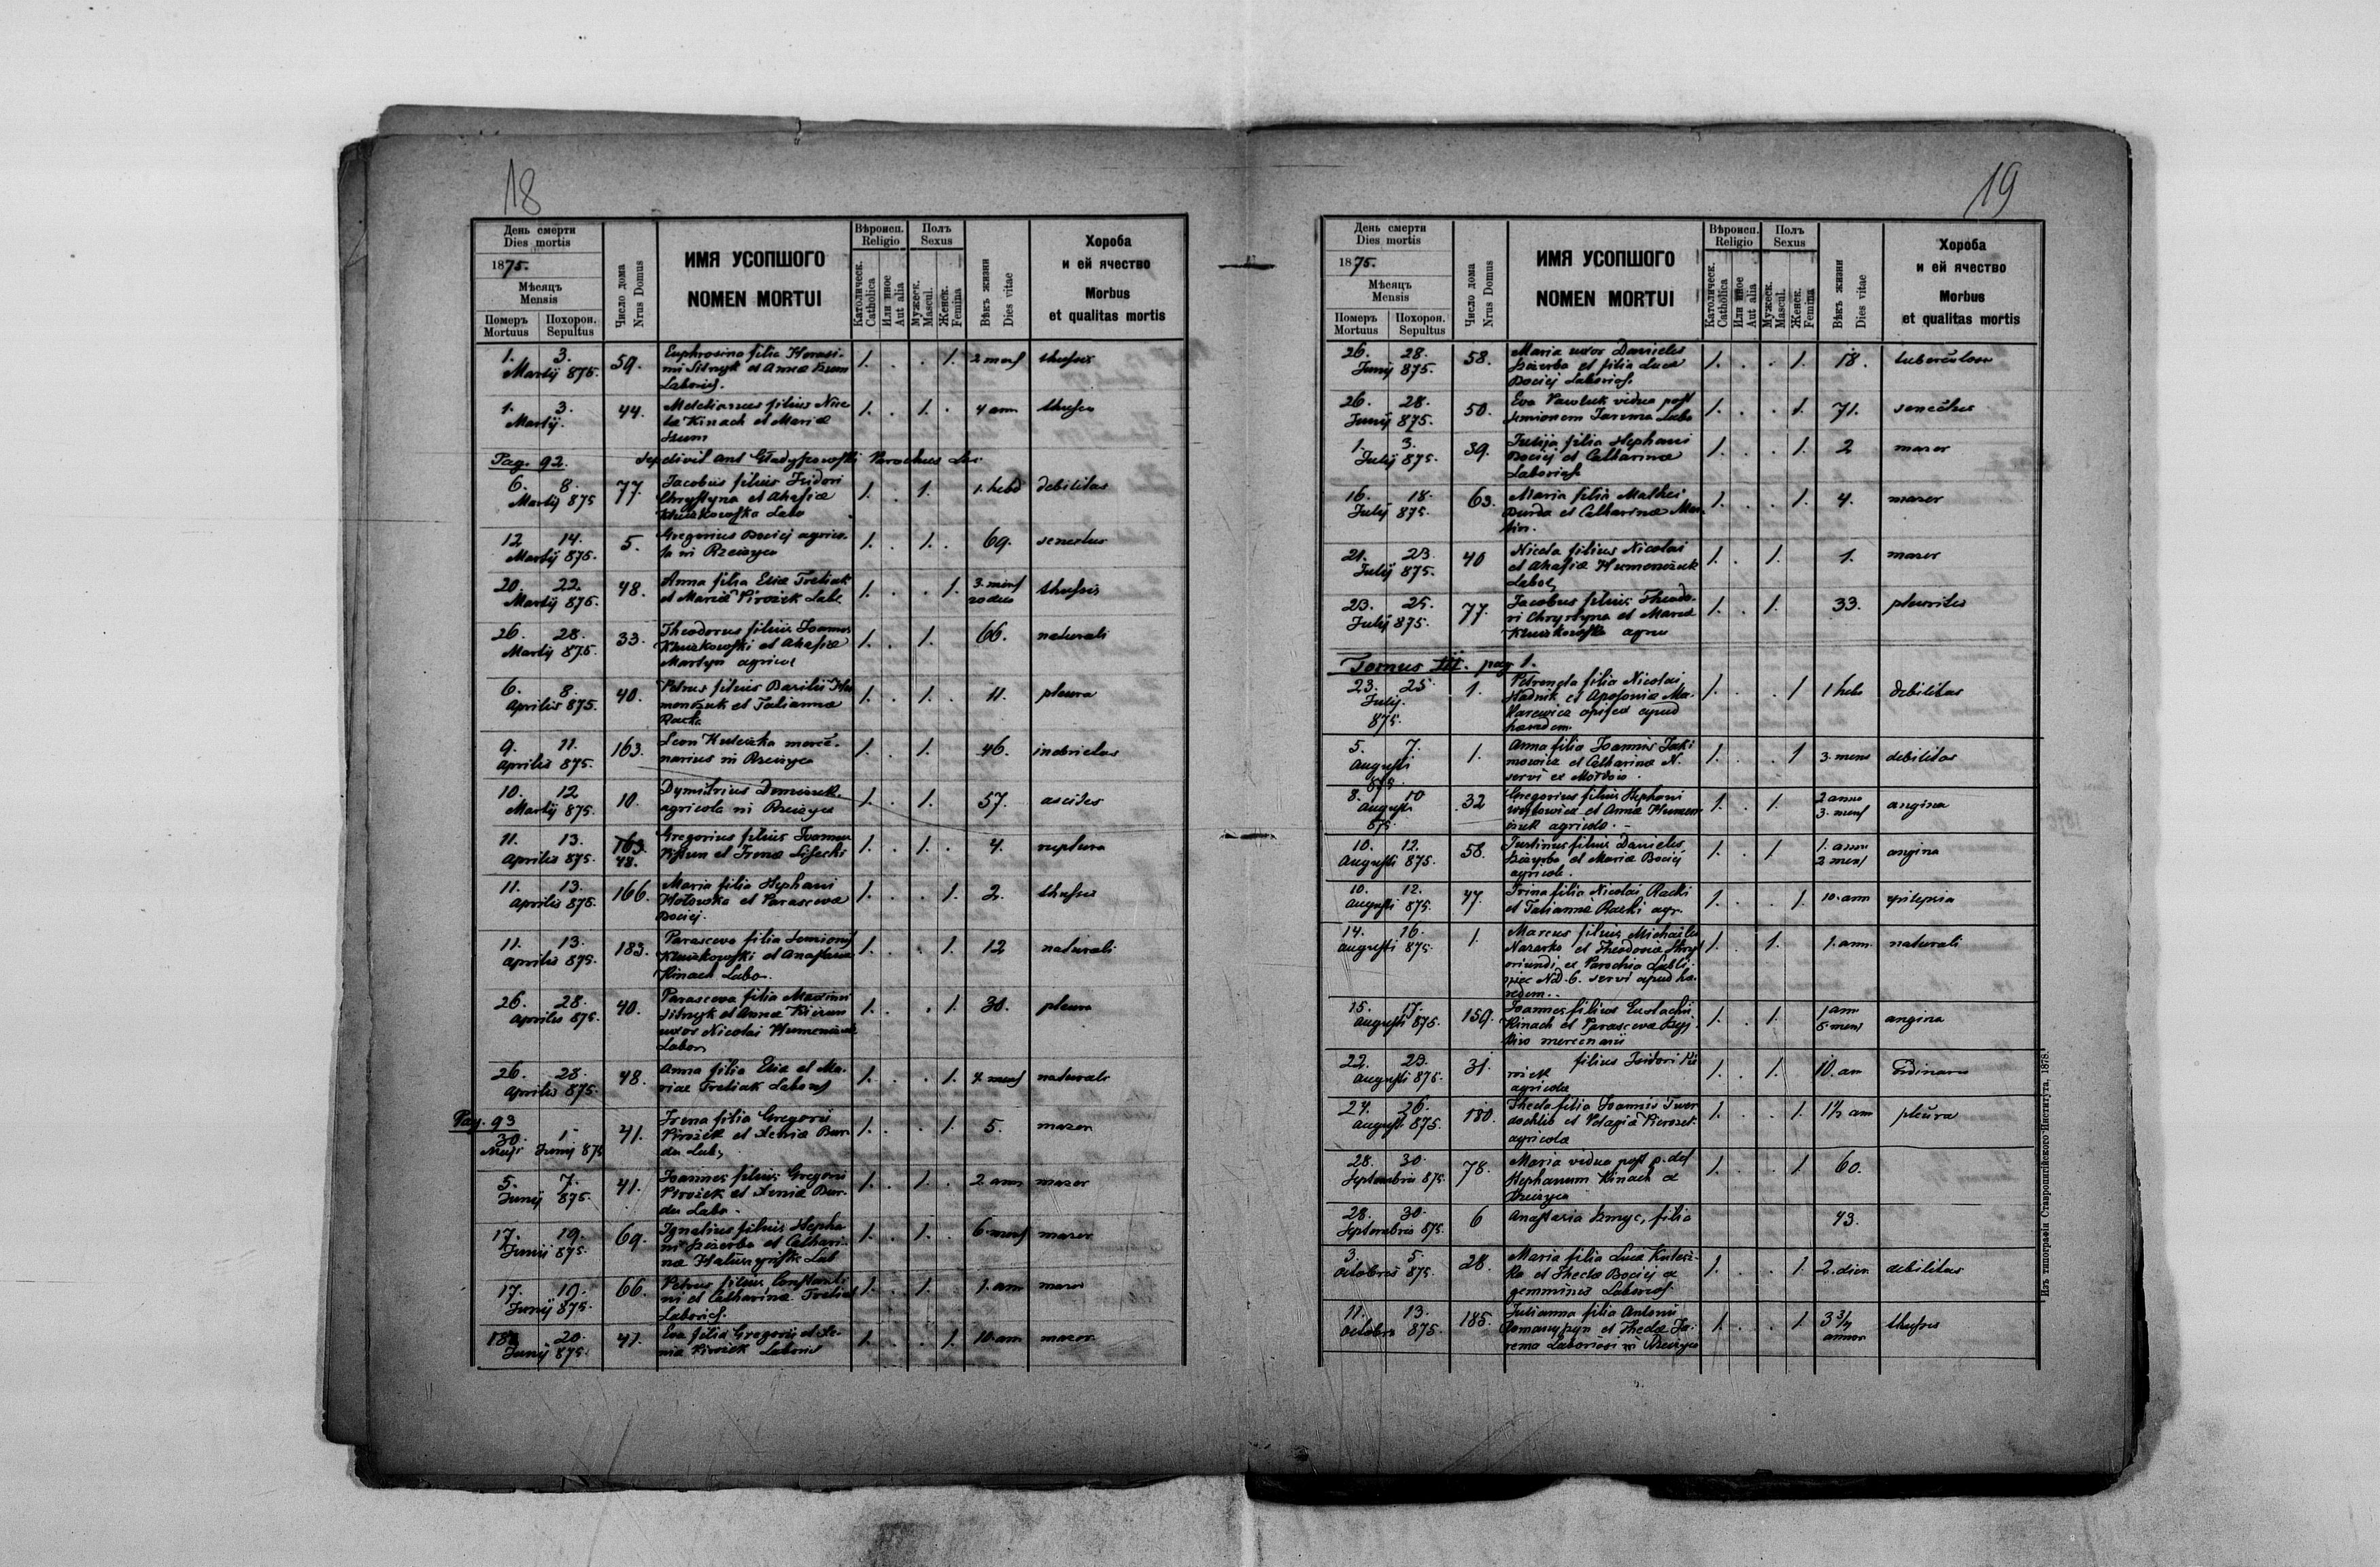 18
День смерти
Dies mortis
1875.
Мѣсяцъ
Mensis
Померъ Похорон.
Mortuus Sepultus
Число дома
Nrus Domus
ИМЯ УСОПШОГО
NOMEN MORTUI
Вѣроисп.
Religio
Католическ.
Catholica
Или иное
Aut alia
Полъ
Sexus
Мужеск.
Mascul.
Женск.
Femina
Вѣкъ жизни
Dies vitae
Хороба
и ей ячество
Morbus
et qualitas mortis
1. 3. Martij 875. 59. Euphrosina filia Harasi-
mi Sitnyk et Anna
Laborios. 1. . . 1. 2 mens thussis
1. 3. Martij. 44. filius Nice
ta Kinach et Maria 1. . 1. . 4 ann
Pag. 92. Gładyszowski Parochus
6. 8. Martij 875 77. Jacobus filius Isidori
Chrystyna et Ahafia
Kruszkowska Labo 1. . 1. 1. hebd debilitas
12 14. Martij 875. 5. Gregorius Bociej agrico-
la in Rzeczyca 1. . 1. . 69. senectus
20. 22. Martij 875. 48. Anna filia Eliae Tretiak
et Maria Pirożek Labo. 1. . . 1. 3. mens
20 dies thussis
26. 28. Martij 875. 33. Theodorus filius Joannis
Kruszkowski et Ahafia
Martyn agricol 1. . 1. 66. naturali
6. 8. Aprilis 875. 40. Petrus filius Basilii Hu
menczuk et Julianna
Racka 1. . 1. . 11. pleura
9. 11. Aprilis 875. 163. Leon merce-
narius in Rzeczyca 1. . 1. 46.
10. 12 Martij 875. 10. Dymitrius
agricola in Rzeczyca 1. . 1. 57. ascites
11. 13. Aprilis 875. 163. 48. Gregorius filius Joannis
et Irena 1. . 1. . 4. ruptura
11. 13. Aprilis 875. 166. Maria filia Stephani
Hołowka et Parasceva
Bociej. 1. . . 1. 2. thussis
11. 13. Aprilis 875. 183. Parasceva filia Semionis
Kruszkowski et Anastasia
Kinach Labo. 1. . . 1. 12 naturali
26. 28. Aprilis 875. 40. Parasceva filia Maximi
Sitnyk et Anna
uxor Nicolai Humenczuk
Labor 1. . . 1. 30. pleura
26. 28. Aprilis 875. 48. Anna filia Eliae et Ma-
riae Tretiak Laborios 1. . . 1. 4. mens naturali
Pag. 93
30. Maji 1. Junij 875 41. Irena filia Gregorii
Pirożek et Xenia Bur-
da Lab. 1. . . 1. 5. mazer
5. 7. Junij 875. 41. Joannes filius Gregorii
Pirożek et Xenia Bur-
da Labo. 1. . 1. . 2 ann mazer
17. 19. Junij 875. 69. Ignatius filius Stepha
ni Szczerba et Cathari-
nae Lab 1. . 1. . 6 mens mazer
17. 19. Junij 875. 66. Petrus filius Constanti
ni et Catharina Tretiak
Laborios. 1. . 1. . 1. ann mazer
18. 20. Junij 875. 41. Eva filia Gregorii et Xe-
nia Pirożek Laborios 1. . . 1. 10. ann mazer
19
День смерти
Dies mortis
1875.
Мѣсяцъ
Mensis
Померъ Похорон.
Mortuus Sepultus
Число дома
Nrus Domus
ИМЯ УСОПШОГО
NOMEN MORTUI
Вѣроисп.
Religio
Католическ.
Catholica
Или иное
Aut alia
Полъ
Sexus
Мужеск.
Mascul.
Женск.
Femina
Вѣкъ жизни
Dies vitae
Хороба
и ей ячество
Morbus
et qualitas mortis
26. 28. Junij 875. 58. Maria uxor Danielis
Szczerba et filia Luca
Bociej Laborios. 1. . . 1. 18. tuberculosa
26. 28. Junij 875. 50. Eva Pawluk vidua post
Semionem Jarema Labo 1. . . 1. 71. senectus
1. 3. Julij 875. 39. filia Stephani
Bociej et Catharina
Laborios. 1. . . 1. 2 mazer
16. 18. Julij 875. 63. Maria filia Mathei
Burda et Catharina Mar-
tin. 1. . . 1. 4. mazer
21. 23 Julij 875. 40 Nicola filius Nicolai
et Ahafia Humenczuk
Labo 1. . 1. 1. mazer
23. 25. Julij 875. 77. Jacobus filius Theodo-
ri Chrystyna et Maria
Kruszkowska agric 1. . 1. 33. pleuritis
Tomus III. pag 1.
23. 25. Julij. 875. 1. Petronela filia Nicolai
Hadnik et Apolonia Ma-
karewicz apud
haeredem. 1. . . 1 1 hebd debilitas
5. 7. Augusti 875 1. Anna filia Joannis Jaki
mowicz et Catharina N.
servi ex 1. . . 1 3. mens debilitas
8. 10 Augusti 875. 32 Gregorius filius Stephani
et Anna Humen
czuk agricola. 1. . 1. 2 anno
3. mens angina
10. 12. Augusti 875. 58. Justinus filius Danielis
Szczerba et Maria Bociej
agricola. 1. . 1 1. anno
2 mens angina
10. 12. Augusti 875. 47. Irina filia Nicolai Racki
et Tatianna Racki agr. 1. . . 1. 10. ann epilepsia
14. 16. Augusti 875. 1. Marcus filius Michaelis
Nazarko et Theodosia
oriundi ex Parochia
ND. 6. servi apud hae-
redem. 1. . 1. 1. ann. naturali
15. 17. Augusti 875. 159. Joannes filius Eustachii
Kinach et Parasceva
mercenarii 1. . 1. 1 ann
5 mens angina
22. 23. Augusti 875. 31. filius Isidori Pi
rożek
agricola 1. . 1. 10. an
24. 26. Augusti 875. 180. Thecla filia Joannis Twer
dochlib et Pelagia
agricola 1. . . 1. 1½ ann pleura
28. 30. Septembris 875. 78. Maria vidua post p. def
Stephanum Kinach
Rzeczyca 1. . . 1 60.
28. 30. Septembris 875. 6 Anastasia , filia 43.
3. 5. Octobris 875. 28. Maria filia Luca
et Thecla Bociej
gemminis Laborios. 1. . . 1 2. dier. debilitas
11. 13. Octobris 875. 185. Julianna filia Antonii
et Thecla Ja-
rema Laboriosi in Rzeczyca 1. . . 1 3 ¾
annor thussis
Изъ типографіи Ставропигійского Института, 1878.